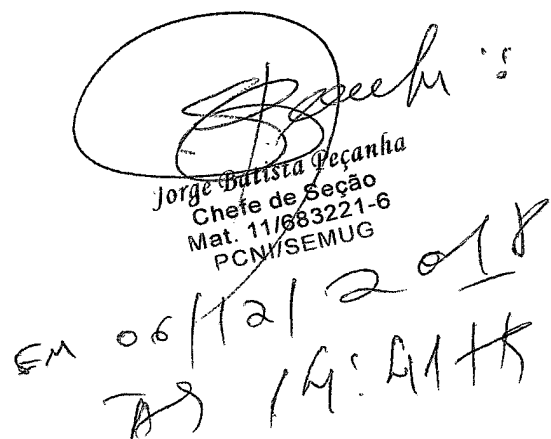 Recebi:
Jorge Batista Peçanha
Chefe de Seção
Mat. 11/683221-6
PCNI/SEMUG
EM 06/12/2018
AS 14:41HS